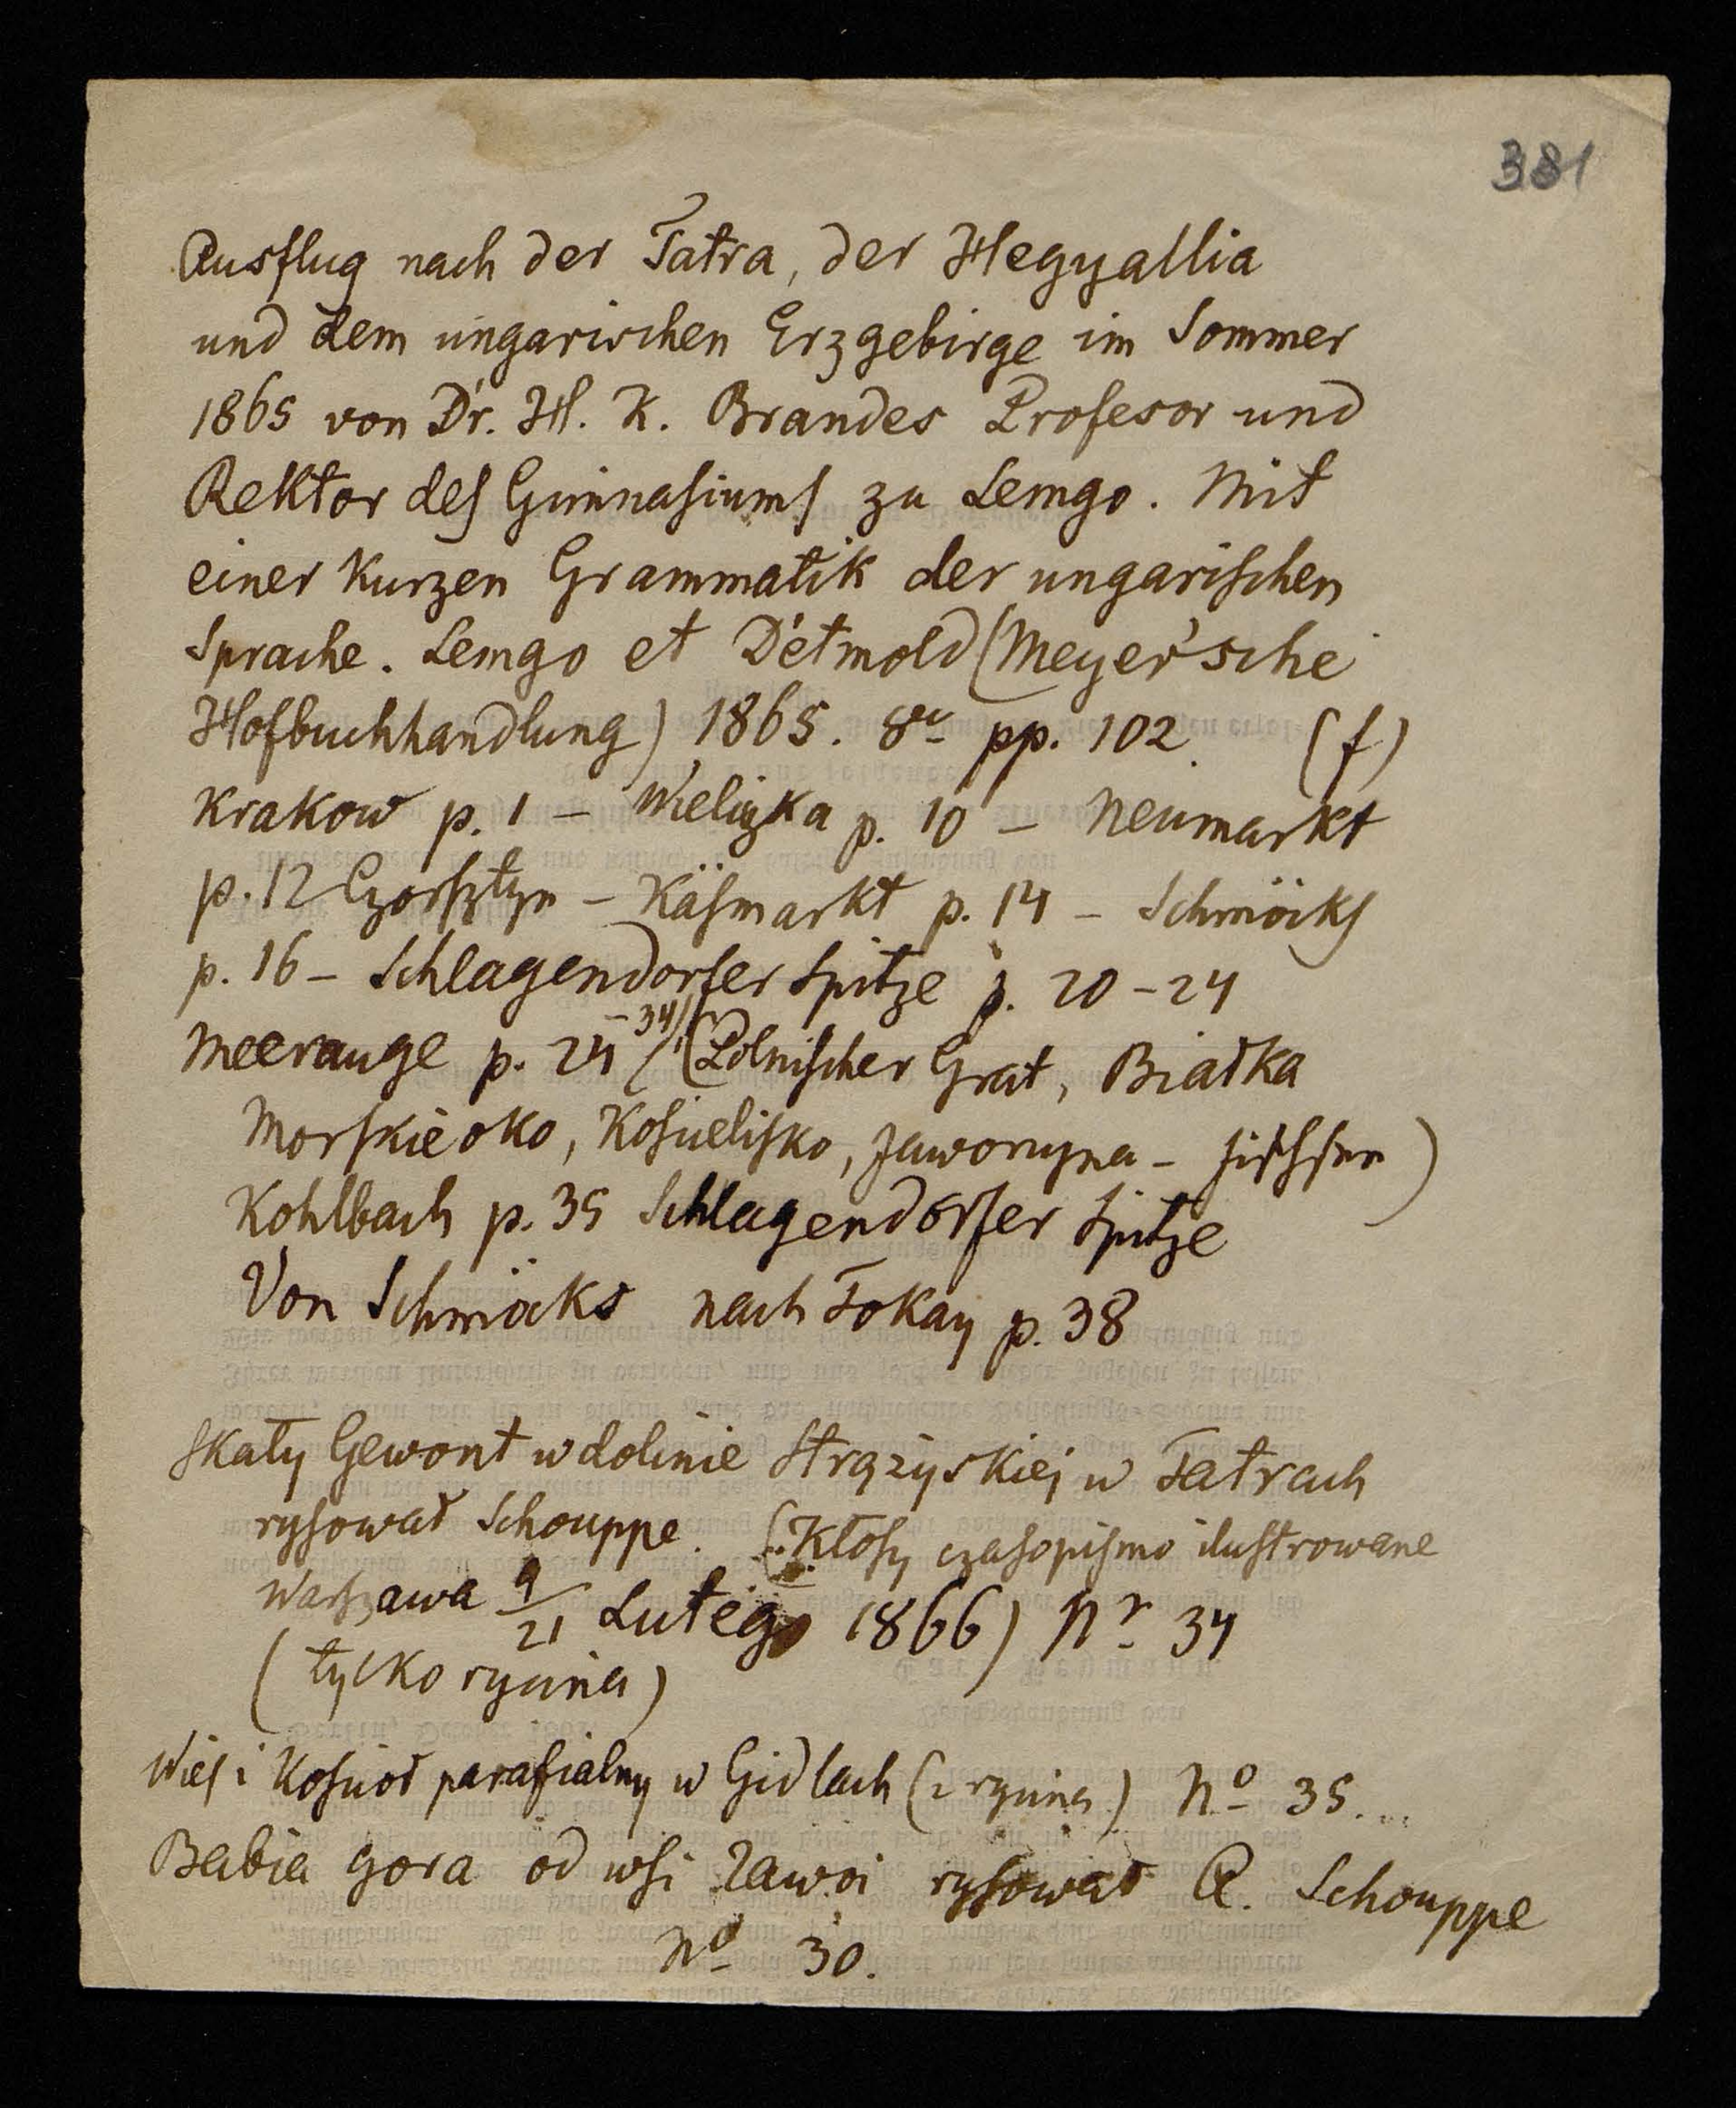 381
Ausflug nach der Tatra, der Hegyallia
und dem ungarischen Erzgebirge im Sommer
1865 von Dr. H. K. Brandes Profesor und
Rektor des Gimnasiums zu Lemgo. Mit
einer Kurzen Grammatik der ungarischen
Sprache. Lemgo et Detmold (Meyer'sche
Hofbuchhandlung) 1865. 8vo pp. 102. (f)
Krakow p. 1 – Wieliczka p. 10 – Neumarkt
p. 12 Czorsztyn – Käsmarkt p. 14 – Schmöcks
p. 16 – Schlagendorfer Spitze p. 20 – 24
Meerauge p. 24 – 34 (Polnischer Grat, Białka
Morskie oko, Kościelisko, Jaworzyna – )
Kohlbach p. 35 Schlagendorfer Spitze
Von Schmöcks nach Tokay p. 38
Skały Gewont w dolinie Strążyskiej w Tatrach
rysował Schouppe. (Kłosy czasopismo ilustrowane
Warszawa 9/21 Lutego 1866) Nr 34
(tylko rycina)
Wieś i Kościoł parafialny w Gidlach (z rycina) No 35...
Babia gora od wsi Zawoi rysował A. Schouppe
No 30.